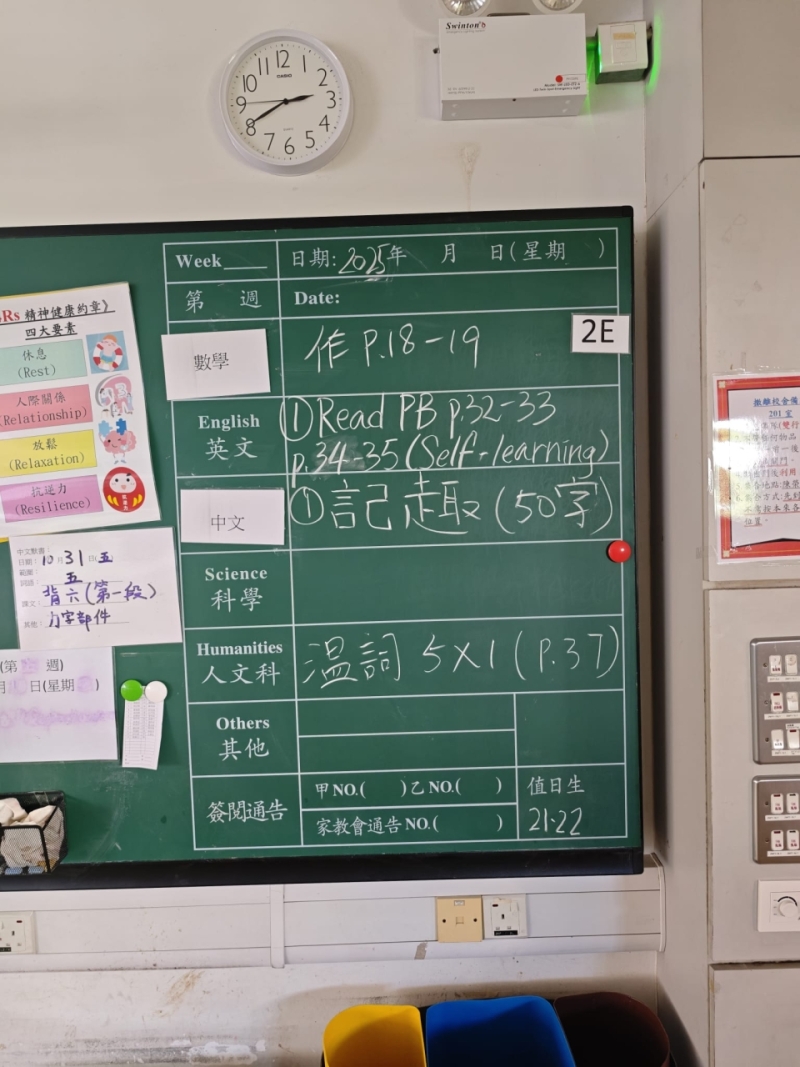 12 1 2 3 4 5 6 7 8 9 10 11
CASIO
Swinton
Rs 精神健康約章》
四大要素
休息
(Rest)
人際關係
(Relationship)
放鬆
(Relaxation)
抗逆力
(Resilience)
中文默書:
日期: 10月31日(五)
範圍:
詞語: 五
課文: 背六(第一段)
其他: 方字部件
(第 週)
月 日(星期 )
Week
日期: 2025年 月 日(星期 )
第 週
Date:
2E
數學
作 P.18-19
English
英文
① Read PB p.32-33
p.34-35 (Self-learning)
中文
① 記趣 (50字)
Science
科學
Humanities
人文科
溫詞 5X1 (P.37)
Others
其他
簽閱通告
甲 NO.( ) 乙 NO.( )
家教會通告 NO.( )
值日生
21.22
撤離校舍備
201 室